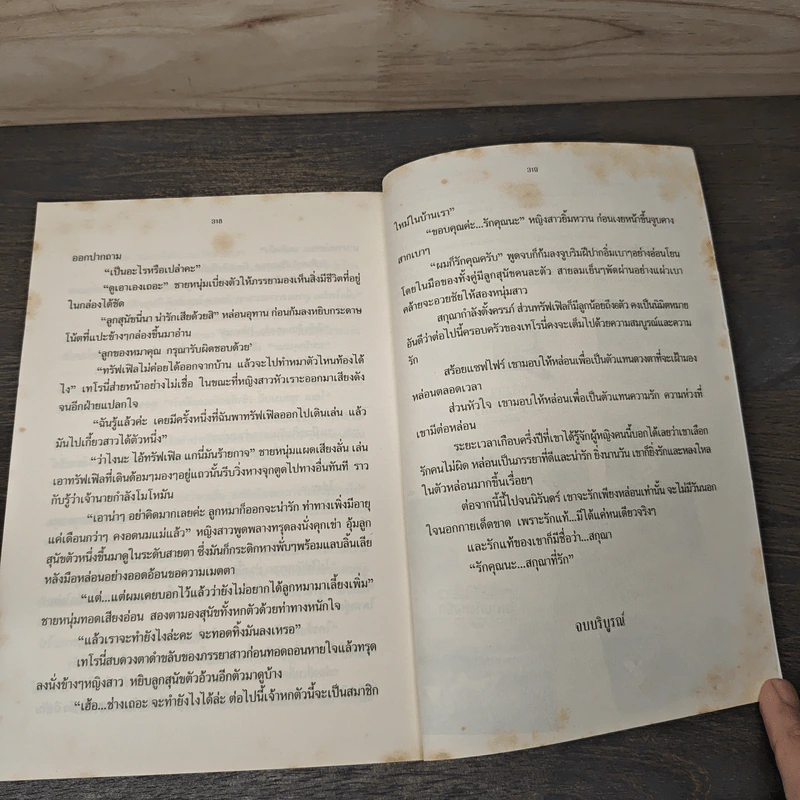 318
ออกปากถาม
“เป็นอะไรหรือเปล่าคะ”
“ดูเอาเองเถอะ” ชายหนุ่มเบี่ยงตัวให้ภรรยามองเห็นสิ่งมีชีวิตที่อยู่
ในกล่องได้ชัด
“ลูกสุนัขนี่นา น่ารักเสียด้วยสิ” หล่อนอุทาน ก่อนก้มลงหยิบกระดาษ
โน้ตที่แปะข้างๆกล่องขึ้นมาอ่าน
‘ลูกของหมาคุณ กรุณารับผิดชอบด้วย’
“ทรัฟเฟิลไม่ค่อยได้ออกจากบ้าน แล้วจะไปทำหมาตัวไหนท้องได้
ไง” เทโรนี่ส่ายหน้าอย่างไม่เชื่อ ในขณะที่หญิงสาวหัวเราะออกมาเสียงดัง
จนอีกฝ่ายแปลกใจ
“ฉันรู้แล้วค่ะ เคยมีครั้งหนึ่งที่ฉันพาทรัฟเฟิลออกไปเดินเล่น แล้ว
มันไปเกี้ยวสาวได้ตัวหนึ่ง”
“ว่าไงนะ ไอ้ทรัฟเฟิล แกนี่มันร้ายกาจ” ชายหนุ่มแผดเสียงลั่น เล่น
เอาทรัฟเฟิลที่เดินต้อมๆมองๆอยู่แถวนั้นรีบวิ่งหางจุกตูดไปทางอื่นทันที ราว
กับรู้ว่าเจ้านายกำลังโมโหมัน
“เอาน่าๆ อย่าคิดมากเลยค่ะ ลูกหมาก็ออกจะน่ารัก ท่าทางเพิ่งมีอายุ
แค่เดือนกว่าๆ คงอดนมแม่แล้ว” หญิงสาวพูดพลางทรุดลงนั่งคุกเข่า อุ้มลูก
สุนัขตัวหนึ่งขึ้นมาดูในระดับสายตา ซึ่งมันก็กระดิกหางพั่บๆพร้อมแลบลิ้นเลีย
หลังมือหล่อนอย่างออดอ้อนขอความเมตตา
“แต่...แต่ผมเคยบอกไว้แล้วว่ายังไม่อยากได้ลูกหมามาเลี้ยงเพิ่ม”
ชายหนุ่มทอดเสียงอ่อน สองตามองสุนัขทั้งหกตัวด้วยท่าทางหนักใจ
“แล้วเราจะทำยังไงล่ะคะ จะทอดทิ้งมันลงเหรอ”
เทโรนี่สบดวงตาดำขลับของภรรยาสาวก่อนทอดถอนหายใจแล้วทรุด
ลงนั่งข้างๆหญิงสาว หยิบลูกสุนัขตัวอ้วนอีกตัวมาดูบ้าง
“เฮ้อ...ช่างเถอะ จะทำยังไงได้ล่ะ ต่อไปนี้เจ้าหกตัวนี้จะเป็นสมาชิก
319
ใหม่ในบ้านเรา”
“ขอบคุณค่ะ...รักคุณนะ” หญิงสาวยิ้มหวาน ก่อนเงยหน้าขึ้นจูบคาง
สากเบาๆ
“ผมก็รักคุณครับ” พูดจบก็ก้มลงจูบริมฝีปากอิ่มเบาๆอย่างอ่อนโยน
โดยในมือของทั้งคู่มีลูกสุนัขคนละตัว สายลมเย็นๆพัดผ่านอย่างแผ่วเบา
คล้ายจะอวยชัยให้สองหนุ่มสาว
สกุณากำลังตั้งครรภ์ ส่วนทรัฟเฟิลก็มีลูกน้อยถึง๖ตัว คงเป็นนิมิตหมาย
อันดีว่าต่อไปนี้ครอบครัวของเทโรนี่คงจะเต็มไปด้วยความสมบูรณ์และความ
รัก
สร้อยแซฟไฟร์ เขามอบให้หล่อนเพื่อเป็นตัวแทนดวงตาที่จะเฝ้ามอง
หล่อนตลอดเวลา
ส่วนหัวใจ เขามอบให้หล่อนเพื่อเป็นตัวแทนความรัก ความห่วงที่
เขามีต่อหล่อน
ระยะเวลาเกือบครึ่งปีที่เขาได้รู้จักผู้หญิงคนนี้บอกได้เลยว่าเขาเลือก
รักคนไม่ผิด หล่อนเป็นภรรยาที่ดีและน่ารัก ยิ่งนานวัน เขาก็ยิ่งรักและหลงใหล
ในตัวหล่อนมากขึ้นเรื่อยๆ
ต่อจากนี้นี้ไปจนนิรันดร์ เขาจะรักเพียงหล่อนเท่านั้น จะไม่มีวันนอก
ใจนอกกายเด็ดขาด เพราะรักแท้...มีได้แค่หนเดียวจริงๆ
และรักแท้ของเขาก็มีชื่อว่า...สกุณา
“รักคุณนะ...สกุณาที่รัก”
จบบริบูรณ์